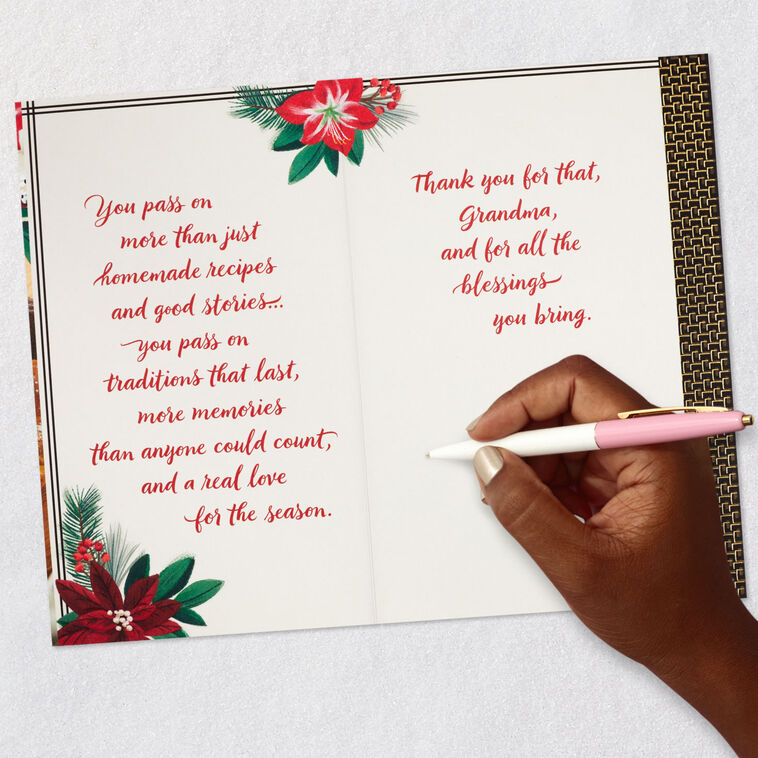 You pass on
more than just
homemade recipes
and good stories...
you pass on
traditions that last,
more memories
than anyone could count,
and a real love
for the season.
Thank you for that,
Grandma,
and for all the
blessings
you bring.